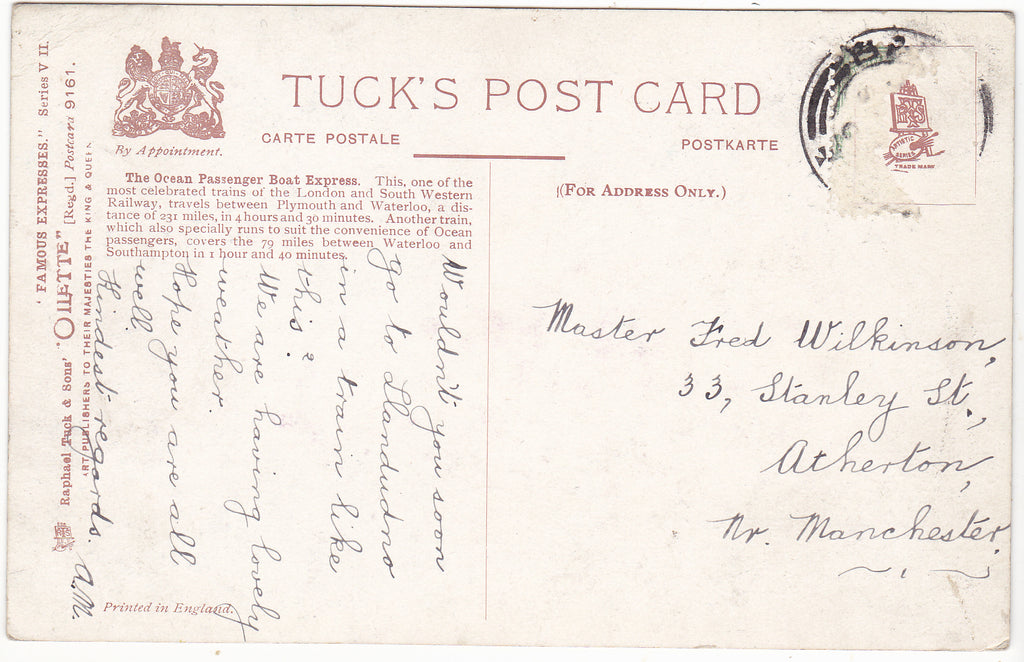 'FAMOUS EXPRESSES." Series VII.
Raphael Tuck & Sons' "OILETTE" [Regd.] Postcard 9161.
ART PUBLISHERS TO THEIR MAJESTIES THE KING & QUEEN
By Appointment.
TUCK'S POST CARD
CARTE POSTALE
POSTKARTE
(FOR ADDRESS ONLY.)
ARTISTIC
SERIES
TRADE MARK
The Ocean Passenger Boat Express. This, one of the
most celebrated trains of the London and South Western
Railway, travels between Plymouth and Waterloo, a dis-
tance of 231 miles, in 4 hours and 30 minutes. Another train,
which also specially runs to suit the convenience of Ocean
passengers, covers the 79 miles between Waterloo and
Southampton in 1 hour and 40 minutes.
Wouldn't you soon
go to Llandudno
in a train like
this?
We are having lovely
weather.
Hope you are all
well
Kindest regards.
A.M.
Master Fred Wilkinson,
33, Stanley St.,
Atherton,
Nr. Manchester.
Printed in England.